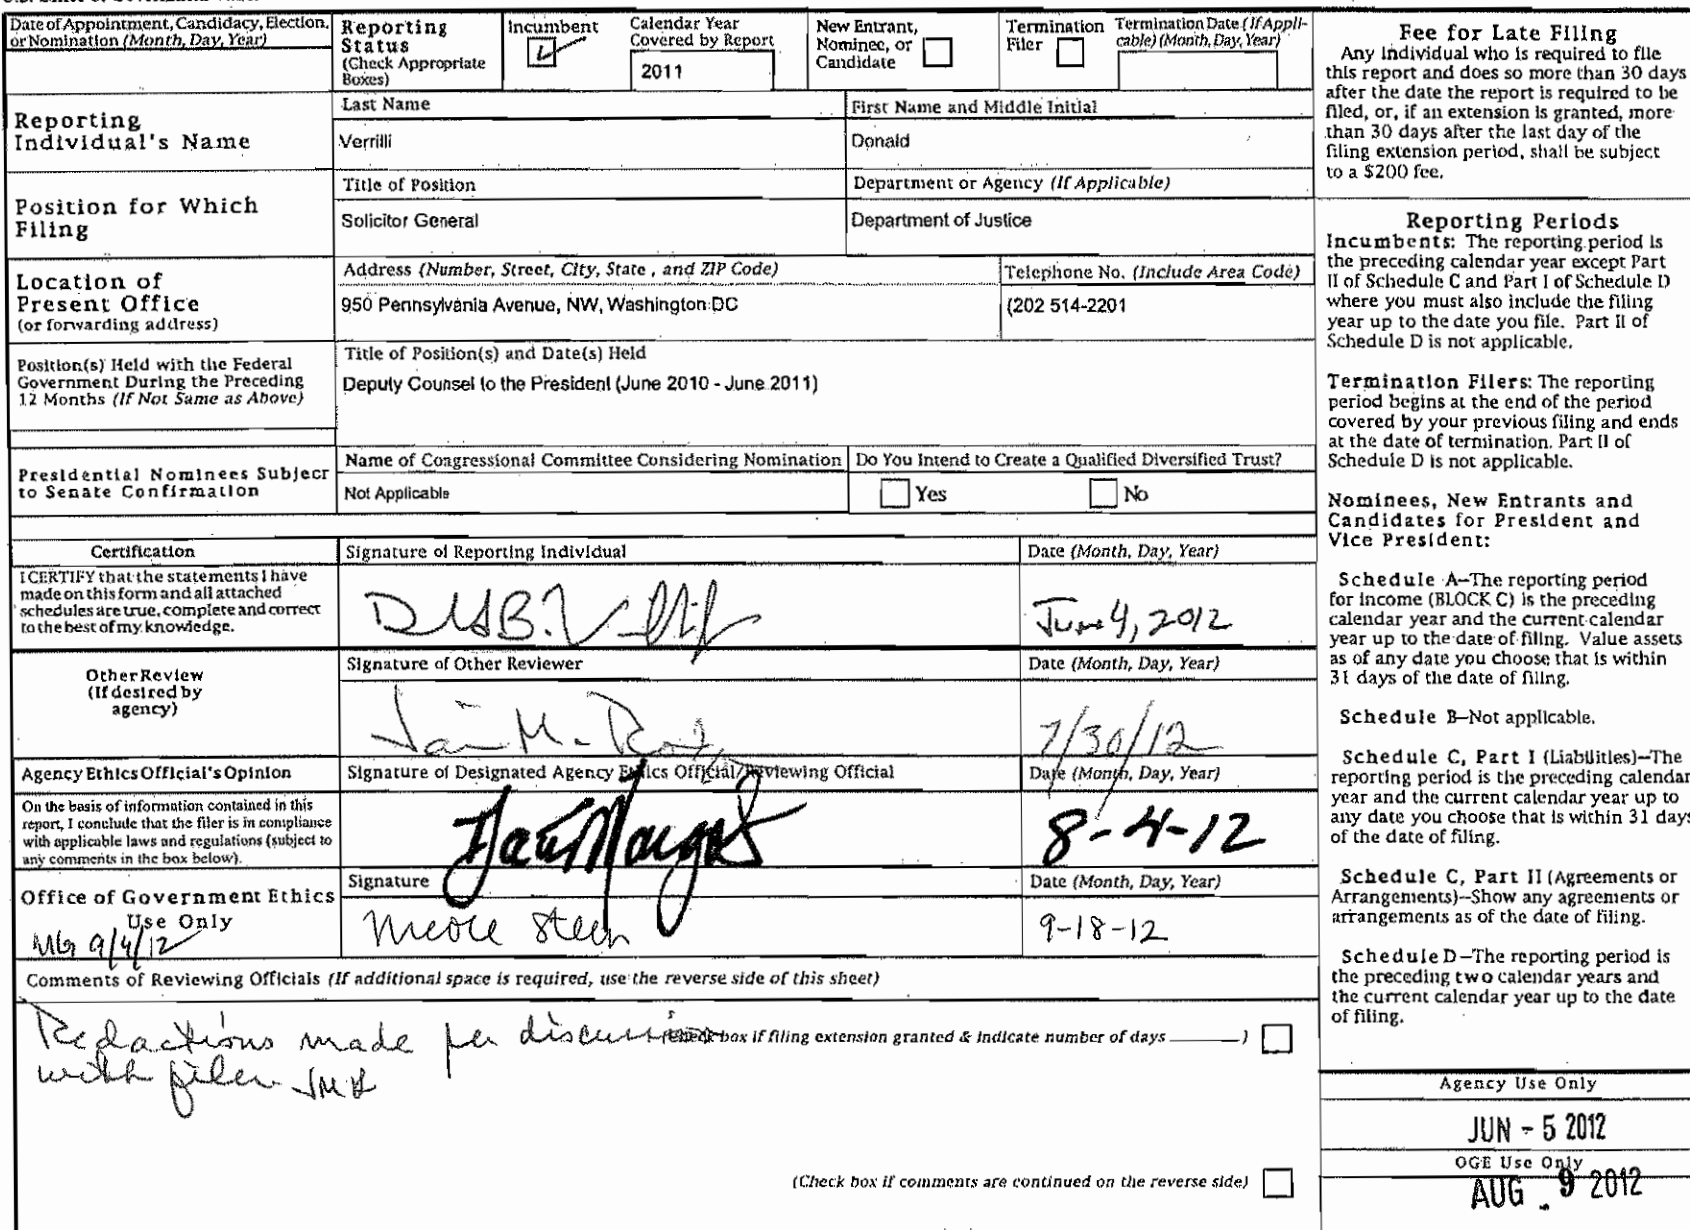 Date of Appointment, Candidacy, Election,
or Nomination (Month, Day, Year)
Reporting
Status
(Check Appropriate
Boxes)
Incumbent
Calendar Year
Covered by Report
2011
New Entrant,
Nominee, or
Candidate
Termination
Filer
Termination Date (If Appli-
cable) (Month, Day, Year)
Reporting
Individual's Name
Last Name
Verrilli
First Name and Middle Initial
Donald
Position for Which
Filing
Title of Position
Solicitor General
Department or Agency (If Applicable)
Department of Justice
Location of
Present Office
(or forwarding address)
Address (Number, Street, City, State , and ZIP Code)
950 Pennsylvania Avenue, NW, Washington DC
Telephone No. (Include Area Code)
(202 514-2201
Position(s) Held with the Federal
Government During the Preceding
12 Months (If Not Same as Above)
Title of Position(s) and Date(s) Held
Deputy Counsel to the President (June 2010 - June 2011)
Presidential Nominees Subject
to Senate Confirmation
Name of Congressional Committee Considering Nomination
Not Applicable
Do You Intend to Create a Qualified Diversified Trust?
Yes
No
Certification
I CERTIFY that the statements I have
made on this form and all attached
schedules are true, complete and correct
to the best of my knowledge.
Signature of Reporting Individual
Date (Month, Day, Year)
June 4, 2012
Other Review
(If desired by
agency)
Signature of Other Reviewer
Date (Month, Day, Year)
7/30/12
Agency Ethics Official's Opinion
On the basis of information contained in this
report, I conclude that the filer is in compliance
with applicable laws and regulations (subject to
any comments in the box below).
Signature of Designated Agency Ethics Official/Reviewing Official
Date (Month, Day, Year)
8-4-12
Office of Government Ethics
Use Only
MG 9/4/12
Signature
Date (Month, Day, Year)
9-18-12
Comments of Reviewing Officials (If additional space is required, use the reverse side of this sheet)
Redactions made per discussion
with filer JMR
box if filing extension granted & indicate number of days ______)
(Check box if comments are continued on the reverse side)
Fee for Late Filing
Any individual who is required to file
this report and does so more than 30 days
after the date the report is required to be
filed, or, if an extension is granted, more
than 30 days after the last day of the
filing extension period, shall be subject
to a $200 fee.
Reporting Periods
Incumbents: The reporting period is
the preceding calendar year except Part
II of Schedule C and Part I of Schedule D
where you must also include the filing
year up to the date you file. Part II of
Schedule D is not applicable.
Termination Filers: The reporting
period begins at the end of the period
covered by your previous filing and ends
at the date of termination. Part II of
Schedule D is not applicable.
Nominees, New Entrants and
Candidates for President and
Vice President:
Schedule A–The reporting period
for income (BLOCK C) is the preceding
calendar year and the current calendar
year up to the date of filing. Value assets
as of any date you choose that is within
31 days of the date of filing.
Schedule B–Not applicable.
Schedule C, Part I (Liabilities)–The
reporting period is the preceding calendar
year and the current calendar year up to
any date you choose that is within 31 days
of the date of filing.
Schedule C, Part II (Agreements or
Arrangements)–Show any agreements or
arrangements as of the date of filing.
Schedule D–The reporting period is
the preceding two calendar years and
the current calendar year up to the date
of filing.
Agency Use Only
JUN - 5 2012
OGE Use Only
AUG 9 2012